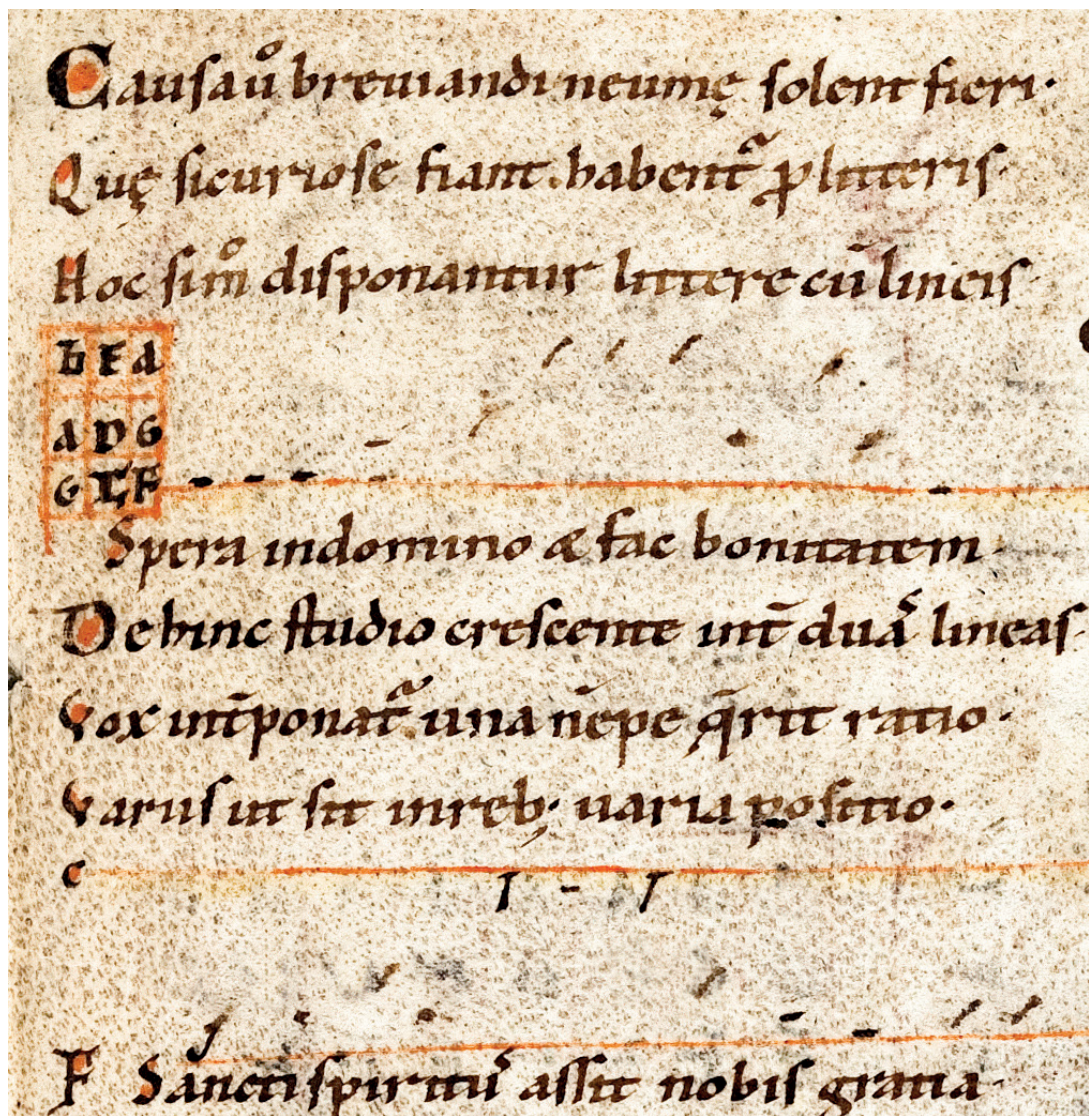 Causa ů breuiandi neumę solent fieri·
Quę si curiose fiant. habent᷑ ꝓ litteris·
Hoc sim̊ disponantur littere cū lineis·
b E A
A D G
G C F
Spera in domino & fac bonitatem·
Dehinc studio crescente int̄ duas lineas·
Vox int̄ponat᷑ una nēpe q̄rit ratio·
Varus ut sit in reb; uaria positio·
C
F Sancti spiritus assit nobis gratia·